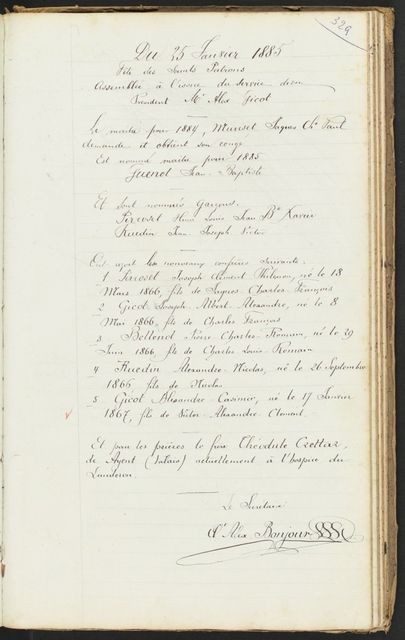 329
Du 25 Janvier 1885
Fête des Saints Patrons
Assemblée à l'issue du service divin
Président Mr Alex Gicot
Le maître pour 1884, Muriset Jaques Chs Paul
demande et obtient son congé
Est nommé maître pour 1885
Guenot Jean-Baptiste
Et sont nommés garçons.
Perroset Henri Louis Jean Bte Xavier
Ruedin Jean Joseph Victor
Ont été reçus les nouveaux confrères suivants:
1 Perroset Joseph Clément Philémon, né le 18
Mars 1866, fils de Jaques Charles-François
2 Gicot Joseph Albert Alexandre, né le 8
Mai 1866, fils de Charles François
3 Bellenot Pierre-Charles-Romain, né le 29
Juin 1866, fils de Charles-Louis-Romain
4 Ruedin Alexandre-Nicolas, né le 26 Septembre
1866 fils de Nicolas
5 Gicot Alexandre-Casimir, né le 17 Janvier
1867, fils de Victor-Alexandre-Clément.
Et pour les prières le frère Théodule Crettaz,
de Ayent (Valais) actuellement à l'hospice du
Landeron
Le Secrétaire
Ch Alex Bonjour